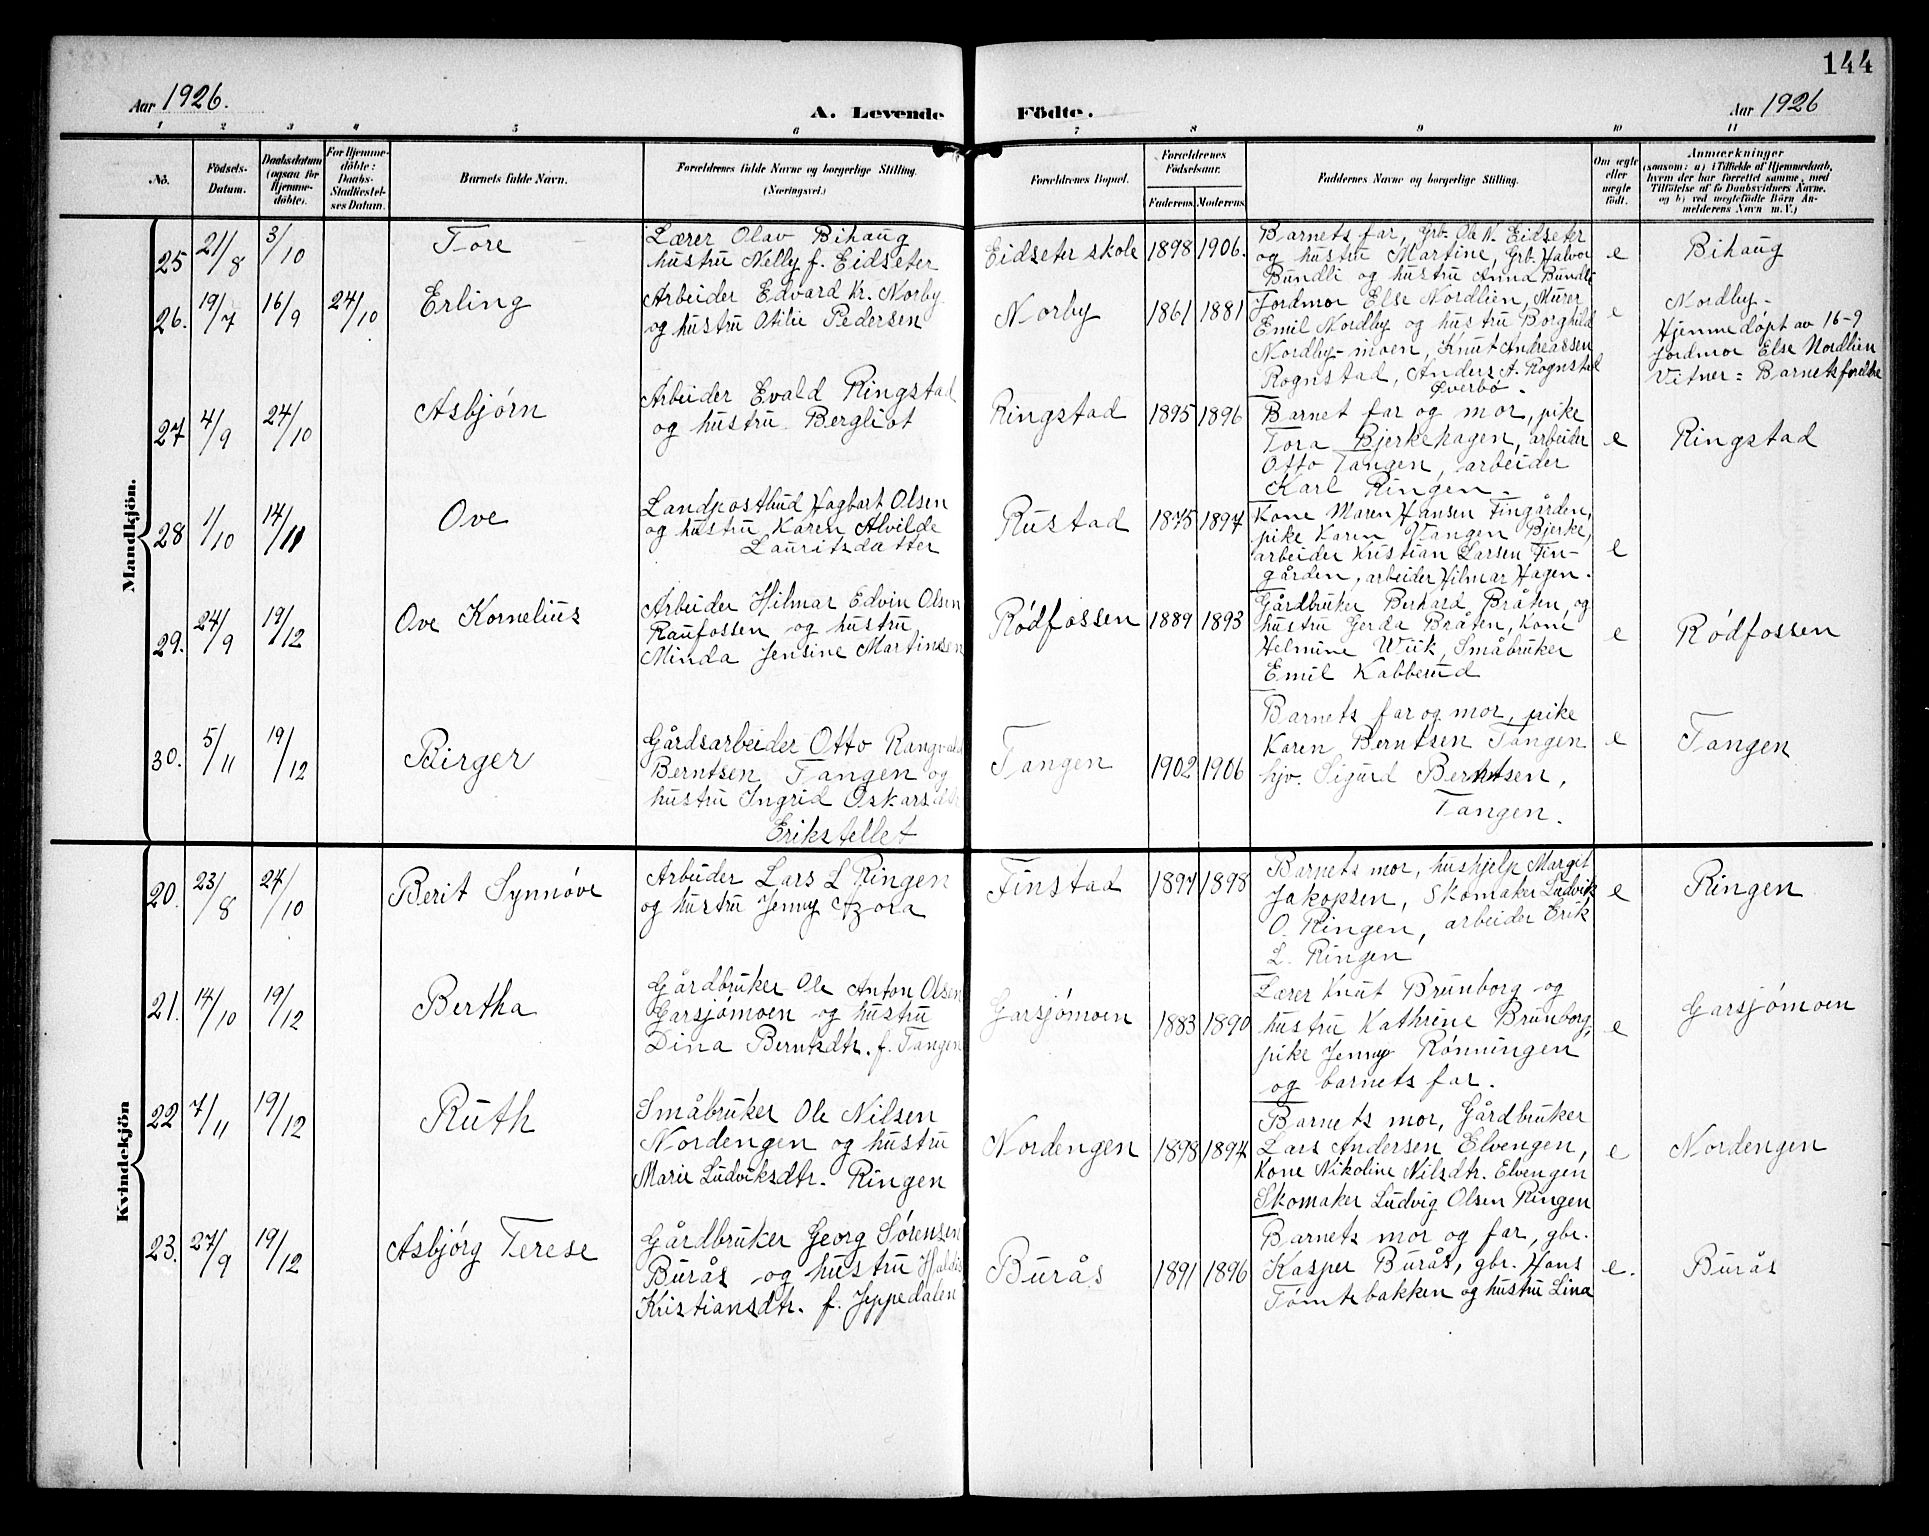 144
Aar 1926.
A. Levende Födte.
Aar 1926
1 2 3 4 5 6 7 8 9 10 11
No.
Födsels-
Datum.
Daabsdatum
(ogsaa for
Hjemme-
döbte).
For Hjemme-
döbte:
Daabs-
Stadfæstel-
ses Datum.
Barnets fulde Navn.
Forældrenes fulde Navne og borgerlige Stilling.
(Næringsvei.)
Forældrenes Bopæl.
Forældrenes
Födselsaar.
Faderens. Moderens.
Faddernes Navne og borgerlige Stilling.
Om ægte
eller
uægte
födt.
Anmærkninger
(saasom: a) i Tilfælde af Hjemmedaab,
hvem der har forrettet samme, med
Tilföielse af to Daabsvidners Navne,
og b) ved uægtefödte Börn An-
melderens Navn m. V.)
Mandkjön.
25 21/8 3/10 Tore
Lærer Olav Bihaug
hustru Nelly f. Eidseter
Eidseter skole 1898 1906.
Barnets far, Grb. Ole K. Eidseter
og hustru Martine, Grb. Halvor
Bundli og hustru Anna Bundli
e Bihaug
26. 19/7 16/9 24/10 Erling
Arbeider Edvard Kr. Norby
og hustru Otilie Pedersen
Norby 1861 1881
Jordmor Else Nordlien, Murer
Emil Nordby og hustru Borghild
Nordby-moen, Knut Andreassen
Rognstad, Anders A. Rognstad
Øverbø.
e Nordby-
Hjemmedøpt av 16-9
Jordmor Else Nordlien
Vitner: Barnets foreldre
27 4/9 24/10 Asbjørn
Arbeider Evald Ringstad
og hustru Bergliot
Ringstad 1895 1896
Barnet far og mor, pike
Tora Bjerkehagen, arbeider
Otto Tangen, arbeider
Karl Ringen.
e Ringstad
28 1/10 14/11 Ove
Landpostbud Hagbart Olsen
og hustru Karen Alvilde
Lauritsdatter
Rustad 1875 1894
Kone Maren Hansen Fingården,
pike Karen Vangen Bjerke,
arbeider Kristian Larsen Fin-
gården, arbeider Hilmar Hagen.
e
29. 24/9 19/12 Ove Kornelius
Arbeider Hilmar Edvin Olsen
Raufossen og hustru
Minda Jensine Martinsen
Rødfossen 1889 1893
Gårdbruker Berhard Bråten, og
hustru Gerda Bråten, Kone
Helmine Wiik, Småbruker
Emil Kabberud
e Rødfossen
30. 5/11 19/12 Birger
Gårdsarbeider Otto Rangvald
Berntsen Tangen og
hustru Ingrid Oskarsdtr
Erikstellet
Tangen 1902 1906
Barnets far og mor, pike
Karen Berntsen Tangen
hjv. Sigurd Berntsen,
Tangen.
e Tangen
Kvindekjön
20. 23/8 24/10 Berit Synnøve
Arbeider Lars L Ringen
og hustru Jenny Azora
Finstad 1897 1898
Barnets mor, hushjelp Marget
Jakopsen, Skomaker Ludvik
O. Ringen, arbeider Erik
L. Ringen
e Ringen
21. 14/10 19/12 Bertha
Gårdbruker Ole Anton Olsen
Garsjømoen og hustru
Dina Berntsdtr. f. Tangen
Garsjømoen 1883 1890
Lærer Knut Brunborg og
hustru Kathrine Brunborg,
pike Jenny Rønningen
og barnets far.
e Garsjømoen
22 7/11 19/12 Ruth
Småbruker Ole Nilsen
Nordengen og hustru
Marie Ludviksdtr. Ringen
Nordengen 1898 1894
Barnets mor, Gårdbruker
Lars Andersen Elvengen,
Kone Nikoline Nilsdtr. Elvengen
Skomaker Ludvig Olsen Ringen
e Nordengen
23. 27/9 19/12 Asbjørg Terese
Gårdbruker Georg Sørensen
Burås og hustru
Kristiansdtr. f. Jeppedalen
Burås 1891 1896
Barnets mor og far, gbr.
Kasper Burås, gbr. Hans
Tømtebakken og hustru Lina
e. Burås